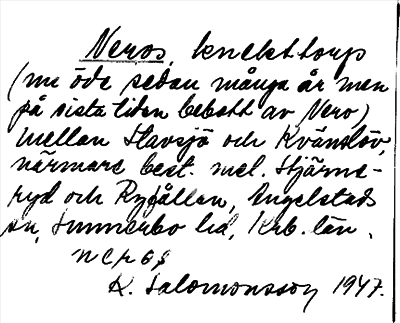 Neros, knekttorp
(nu öde sedan många år men
på sista tiden bebott av Nero)
mellan Stavsjö och Kvänslöv,
närmare best. mel. Stjärne-
ryd och Rygållen, Angelstads
sn, Sunnerbo hd, Krb. län.
neros
K. Salomonsson 1947.